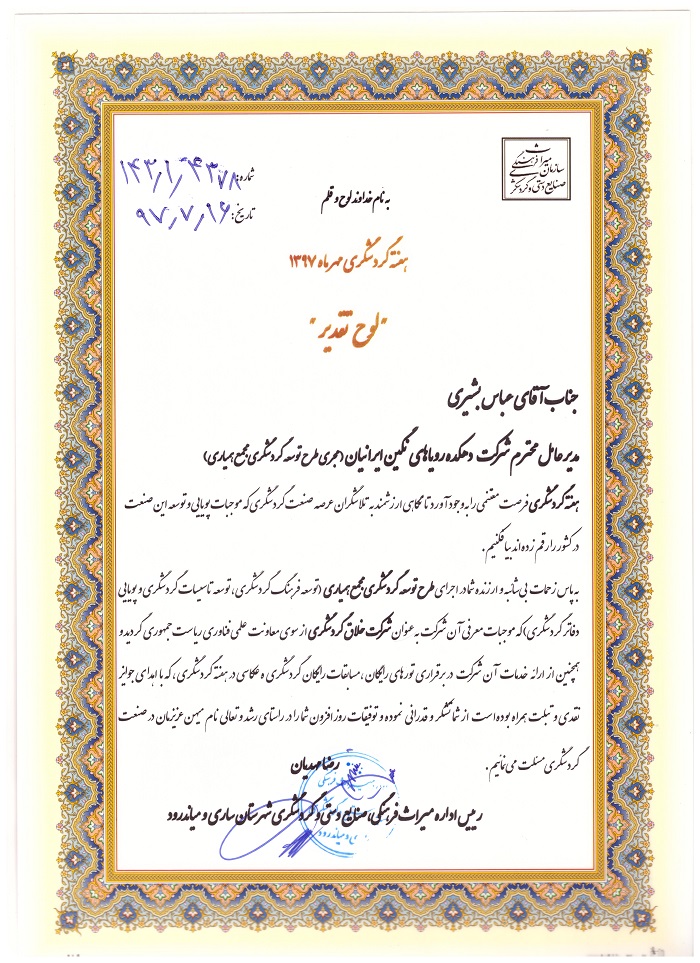 سازمان میراث فرهنگی
صنایع دستی و گردشگری
شماره: ۱۴۳/۱/۴۳۷۸
تاریخ: ۹۷/۷/۱۶
به نام خداوند لوح و قلم
هفته گردشگری مهرماه ۱۳۹۷
"لوح تقدیر"
جناب آقای عباس بشیری
مدیرعامل محترم شرکت دهکده رویاهای نگین ایرانیان (مجری طرح توسعه گردشگری مجمع همیاری)
هفته گردشگری فرصت مغتنمی را به وجود آورد تا نگاهی ارزشمند به تلاشگران عرصه صنعت گردشگری که موجبات پویایی و توسعه این صنعت
در کشور را رقم زده اند بیافکنیم.
به پاس زحمات بی شائبه و ارزنده شما در اجرای طرح توسعه گردشگری مجمع همیاری (توسعه فرهنگ گردشگری، توسعه تاسیسات گردشگری و پویایی
دفاتر گردشگری) که موجبات معرفی آن شرکت به عنوان شرکت خلاق گردشگری از سوی معاونت علمی فناوری ریاست جمهوری گردید و
همچنین از ارائه خدمات آن شرکت در برقراری تورهای رایگان، مسابقات رایگان گردشگری ه عکاسی در هفته گردشگری، که با اهدای جوایز
نقدی و تبلت همراه بوده است از شما تشکر و قدردانی نموده و توفیقات روز افزون شما را در راستای رشد و تعالی نام میهن عزیزمان در صنعت
گردشگری مسئلت می نمائیم.
رضا مهدیان
رییس اداره میراث فرهنگی، صنایع دستی و گردشگری شهرستان ساری و میاندرود